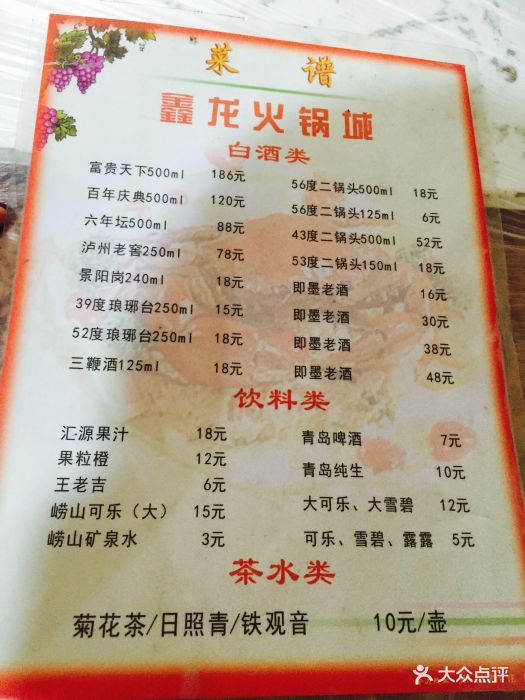 菜 谱
鑫龙火锅城
白酒类
富贵天下500ml 186元
百年庆典500ml 120元
六年坛500ml 88元
泸州老窖250ml 78元
景阳岗240ml 18元
39度琅琊台250ml 15元
52度琅琊台250ml 18元
三鞭酒125ml 18元
56度二锅头500ml 18元
56度二锅头125ml 6元
43度二锅头500ml 52元
53度二锅头150ml 18元
即墨老酒 16元
即墨老酒 30元
即墨老酒 38元
即墨老酒 48元
饮料类
汇源果汁 18元
果粒橙 12元
王老吉 6元
崂山可乐（大） 15元
崂山矿泉水 3元
青岛啤酒 7元
青岛纯生 10元
大可乐、大雪碧 12元
可乐、雪碧、露露 5元
茶水类
菊花茶/日照青/铁观音 10元/壶
大众点评